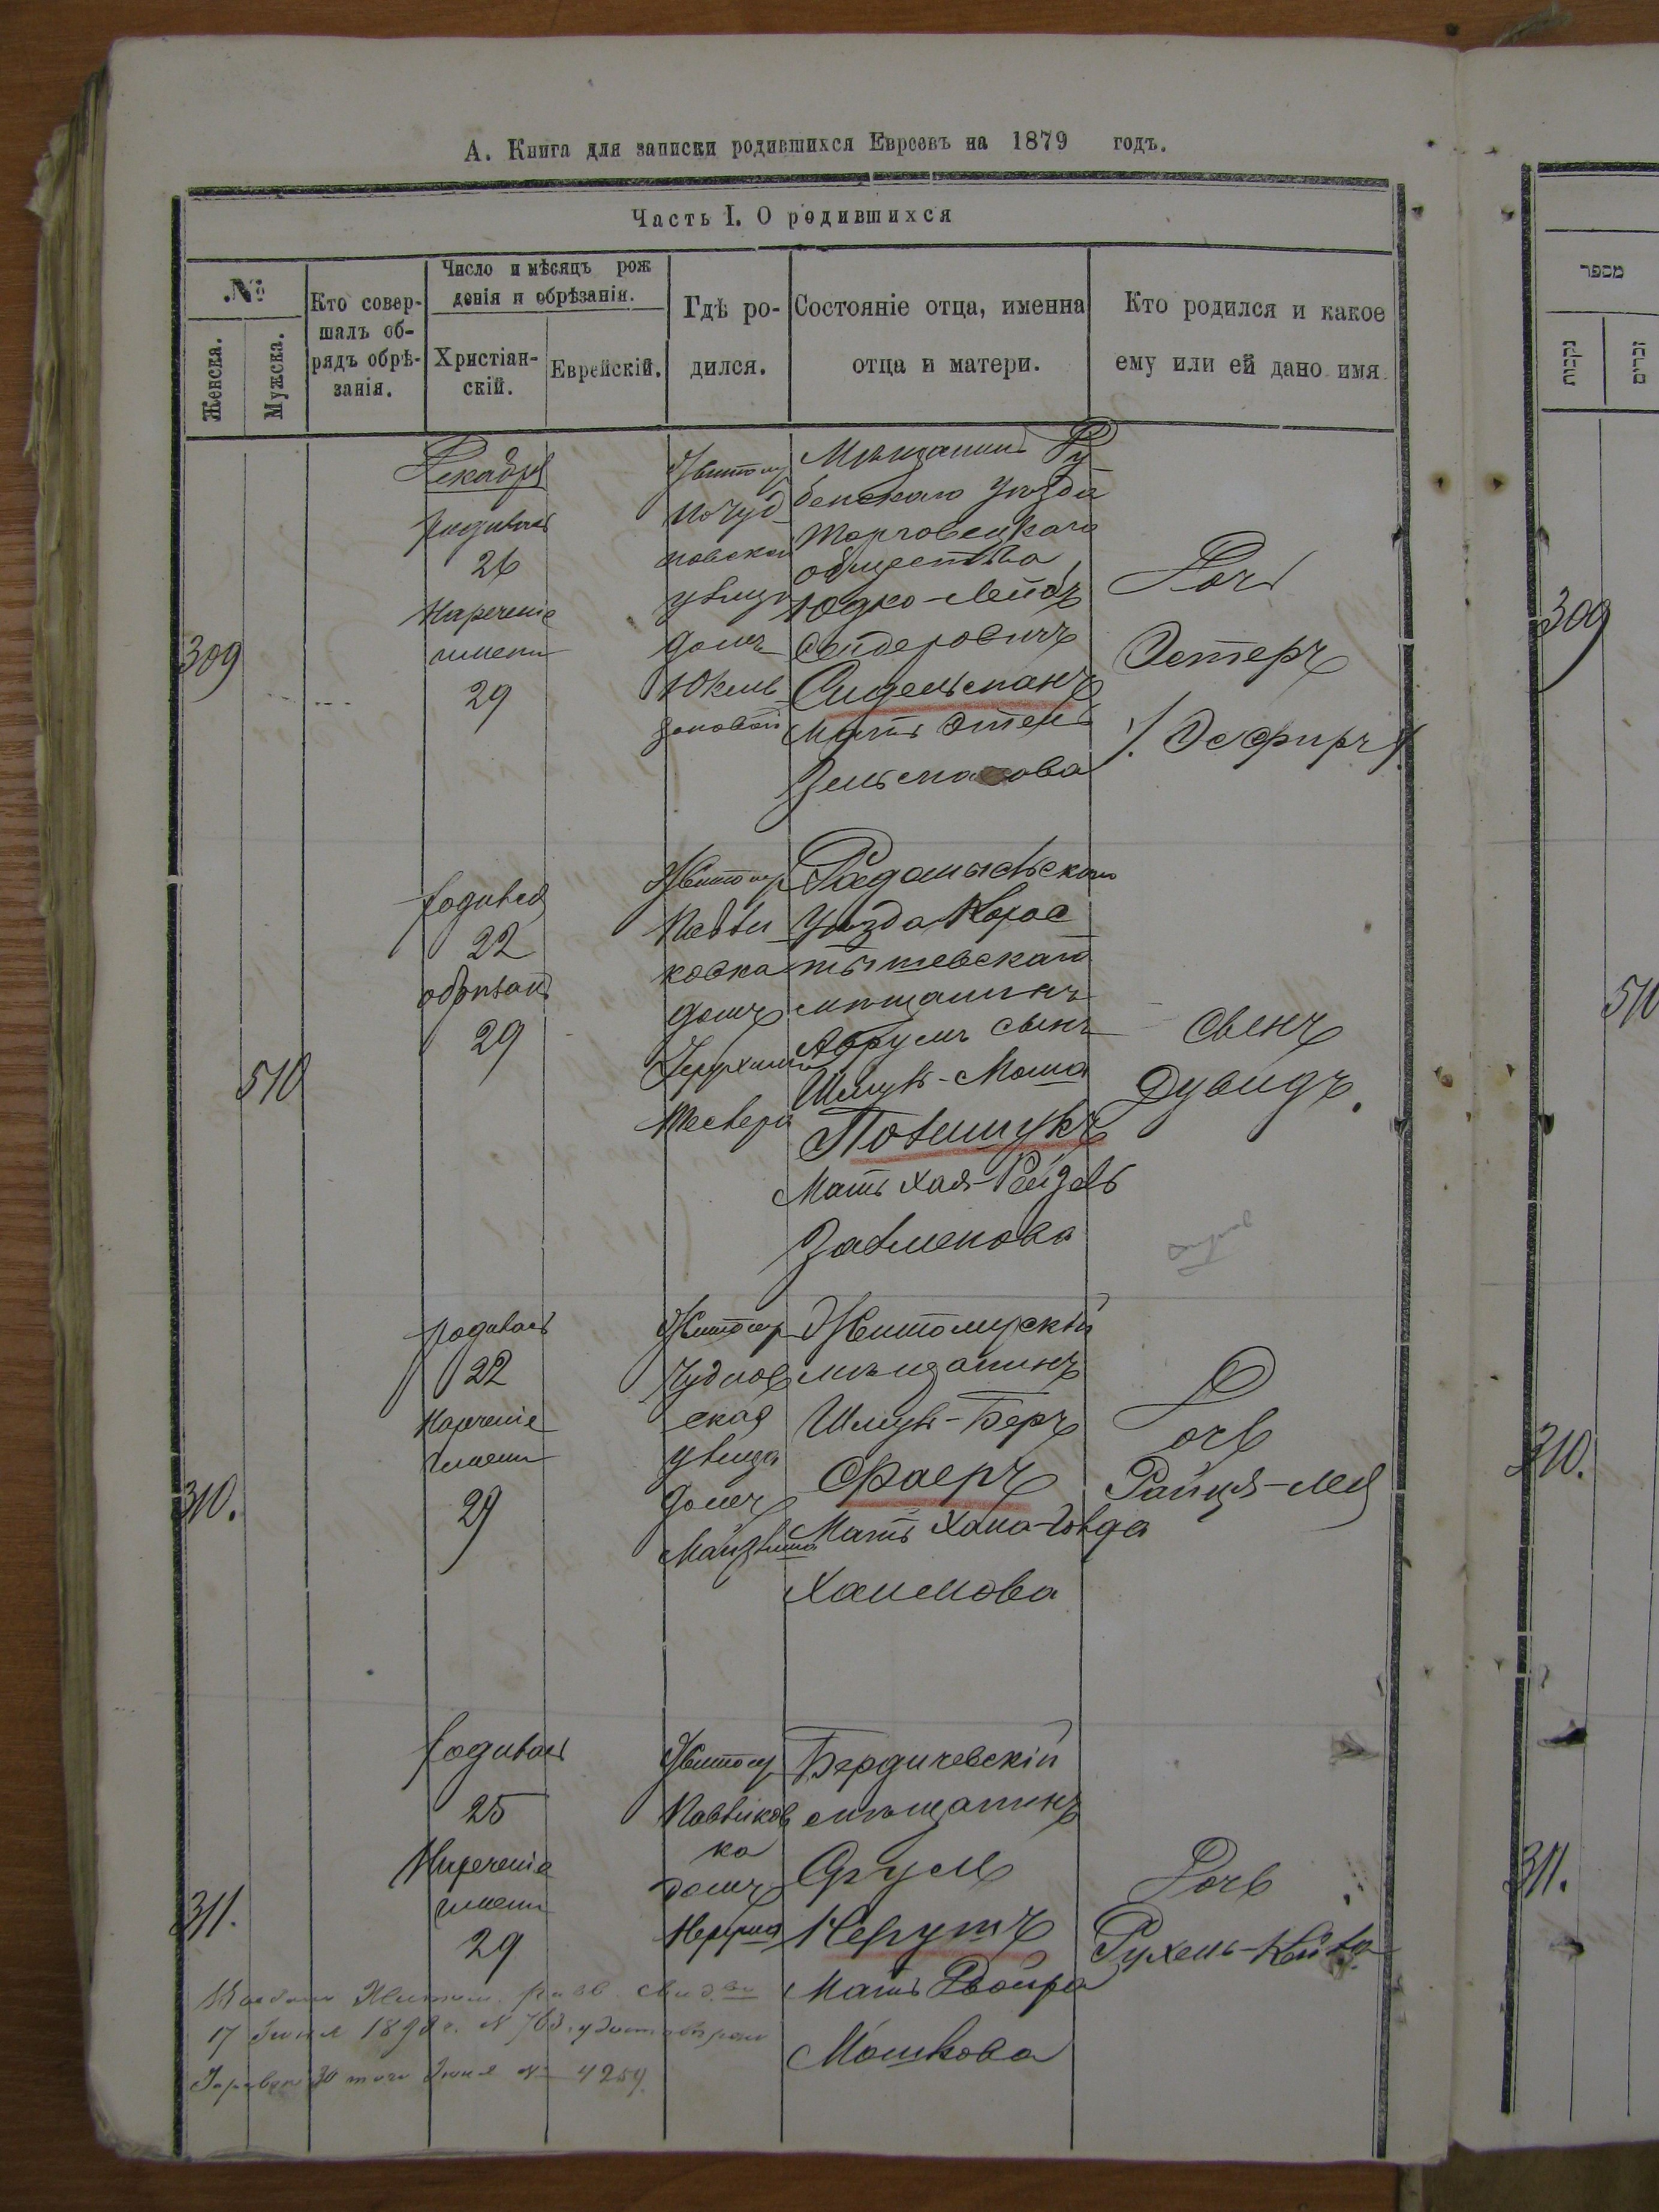 А. Книга для записки родившихся Евреевъ на 1879 годъ.
Часть I. О родившихся
№
Женска.
Мужска.
Кто совер-
шалъ об-
рядъ обрѣ-
занія.
Число и мѣсяцъ рож
денія и обрѣзанія.
Христіан-
скій.
Еврейскій.
Гдѣ ро-
дился.
Состояніе отца, именна
отца и матери.
Кто родился и какое
ему или ей дано имя.
309
Декабря
родилась
26
Нареченіе
имени
29
Житомир
по Чуд
новской
улицѣ
домъ
Мѣщанинъ
уѣзда
общества
Юдко-Лейбъ
Сендеровичъ
Сидельманъ
Мать
Дочь
Эстеръ
/. Эсфирь /.
510
родился
22
обрѣзанъ
29
Житомир
Павли
ковка
домъ
Радомысльскаго
уѣзда Корос
тышевскаго
мѣщанинъ
Аврумъ сынъ
Шмуль-Мошка
Полищукъ
Мать Хая-Рейзель
Залменова
сынъ
Дувидъ.
310.
родилась
22
Нареченіе
имени
29
Житомир
Чуднов
ская
улица
домъ
Житомирскій
мѣщанинъ
Шмуль-Беръ
Фаеръ
Мать Хана-Голда
Хаимова
Дочь
Райця-Лея
311.
родилась
25
Нареченіе
имени
29
Житомир
Павликов
ка
домъ
Бердичевскій
мѣщанинъ
Срулъ
Мать Двойра
Мошкова
Дочь
Рухель-
17 Іюня 189 г. № 763
30 того Іюня № 4259.
מספר
נקבות
זכרים
309
510
310.
311.